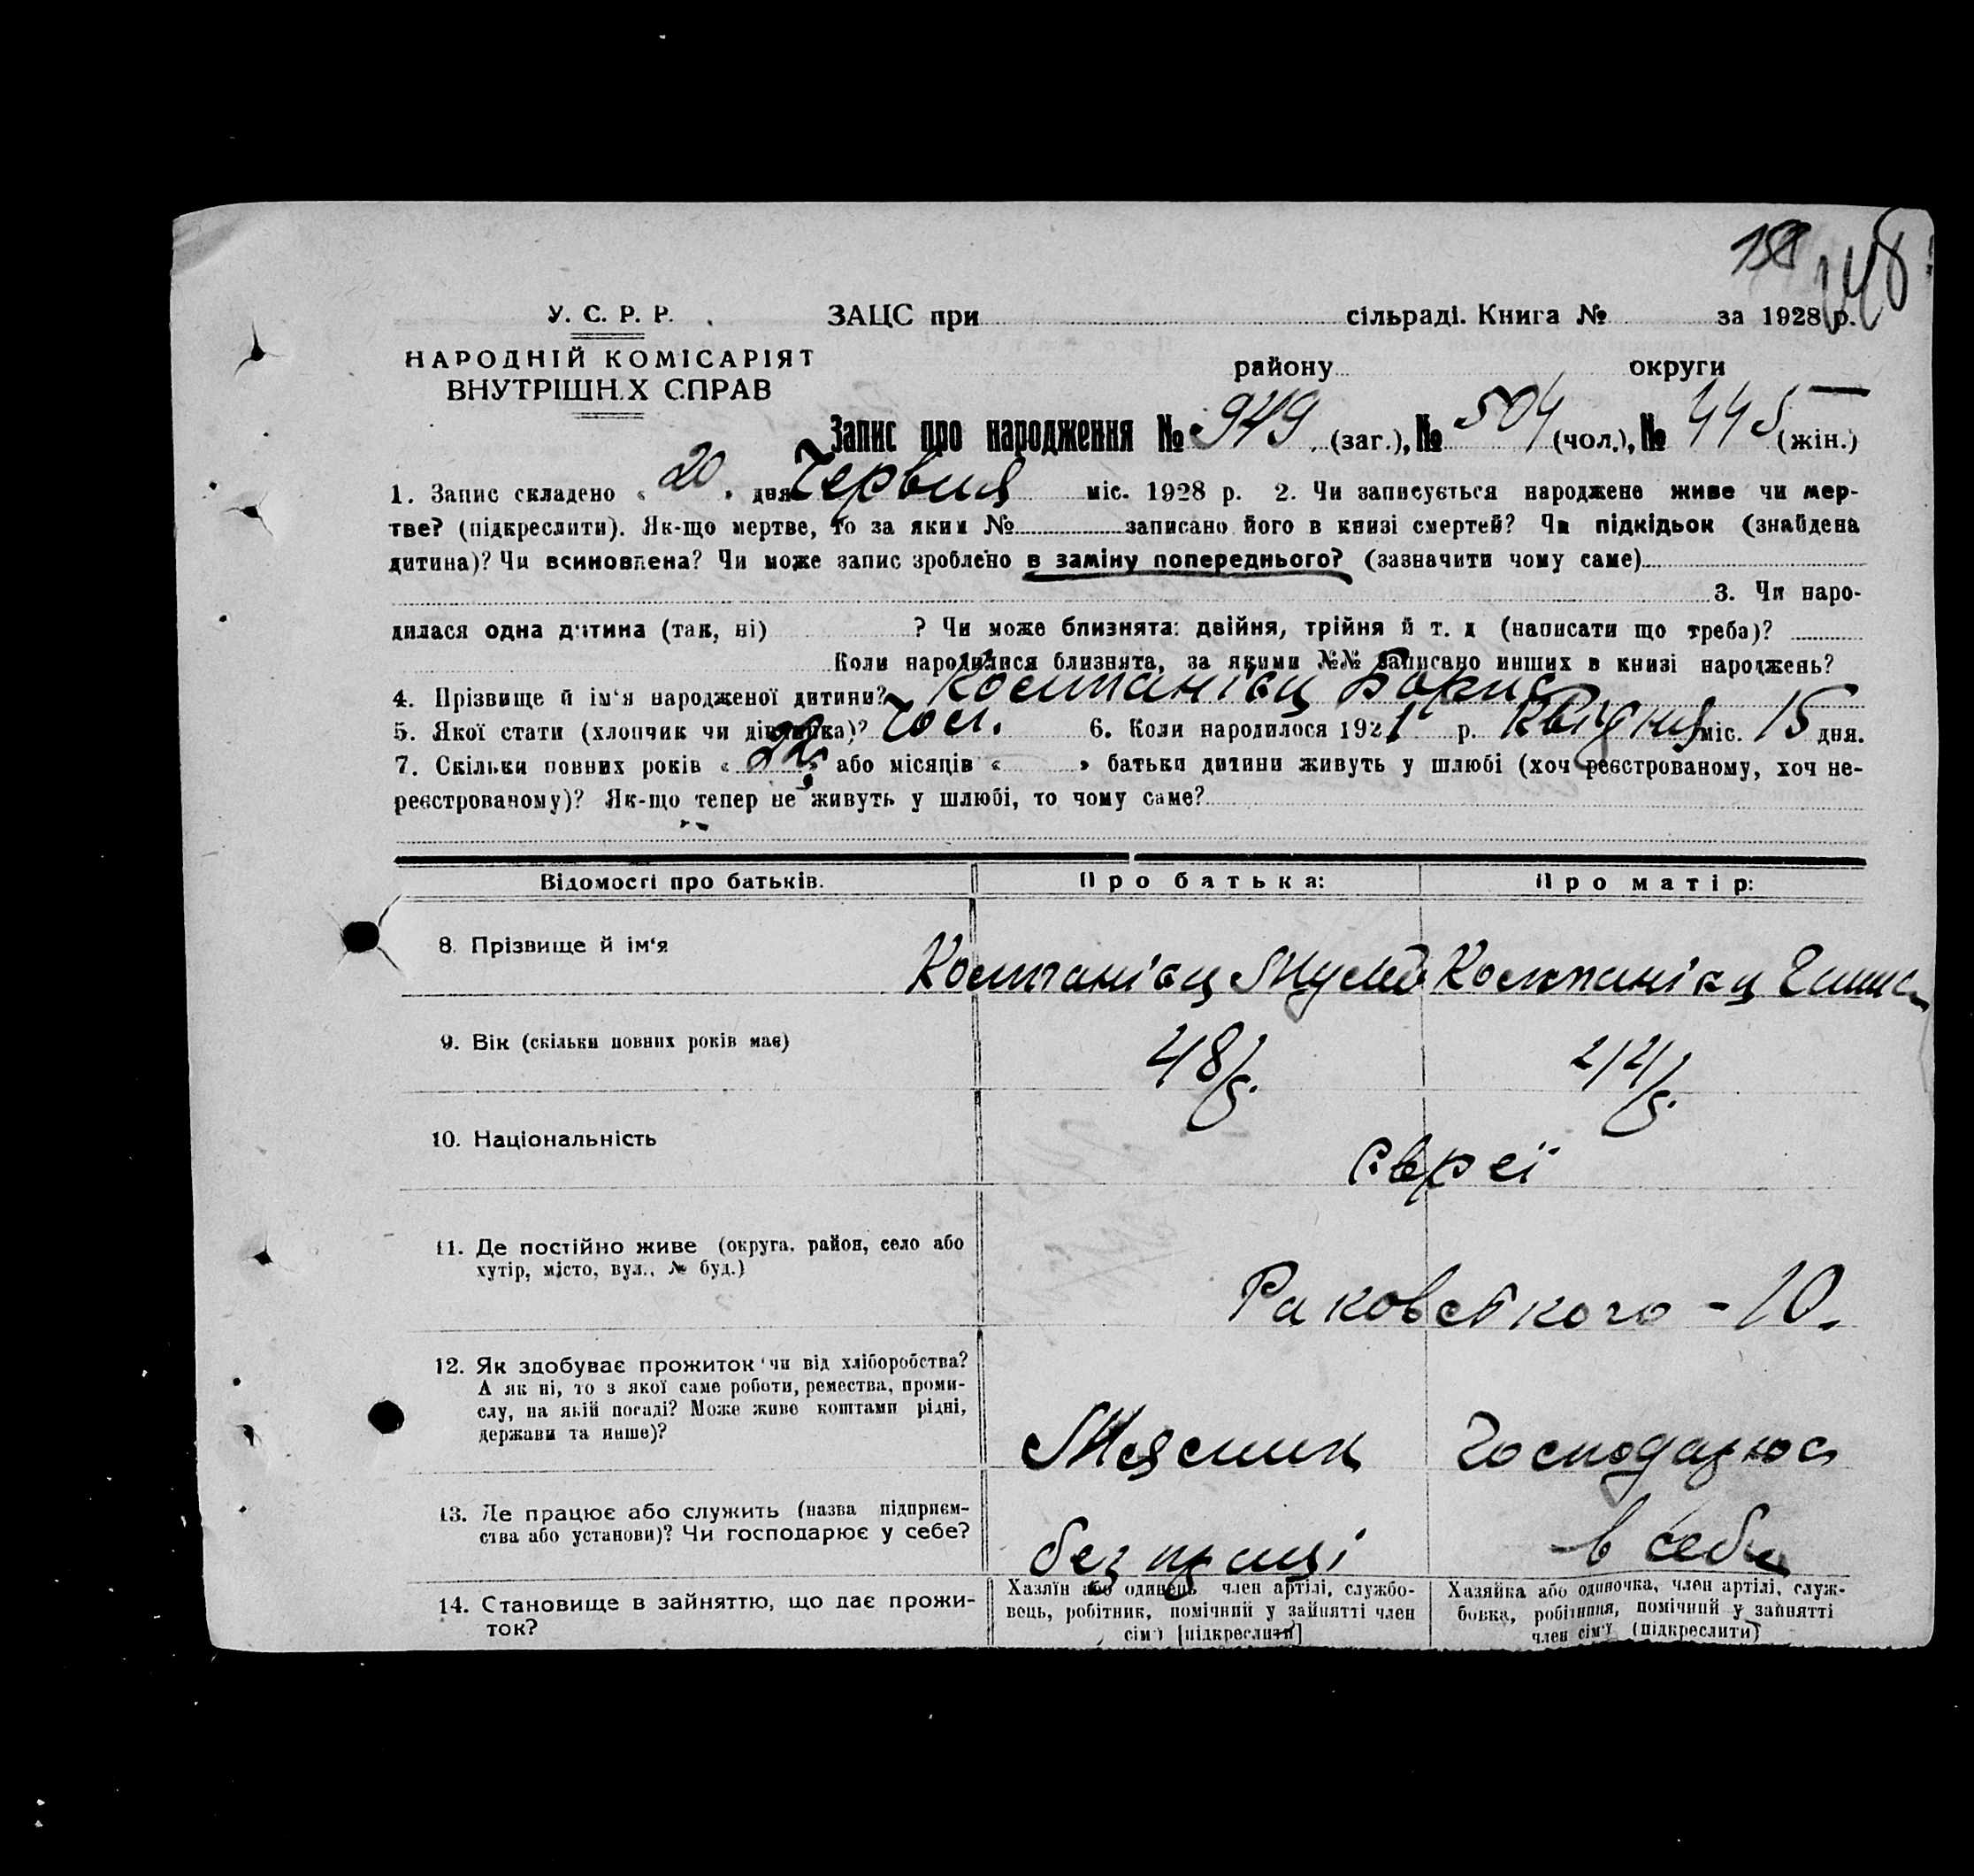 158
148
У. С. Р. Р.
НАРОДНІЙ КОМІСАРІЯТ
ВНУТРІШН.Х СПРАВ
ЗАЦС при сільраді. Книга № за 1928 р.
району округи
Запис про народження № 949 (заг.), № 504 (чол.), № 445 (жін.)
1. Запис складено « 20 » дня Червня міс. 1928 р. 2. Чи записується народжене живе чи мер-
тве? (підкреслити). Як-що мертве, то за яким № записано його в книзі смертей? Чи підкідьок (знайдена
дитина)? Чи всиновлена? Чи може запис зроблено в заміну попереднього? (зазначити чому саме)
3. Чи наро-
дилася одна дитина (так, ні) ? Чи може близнята: двійня, трійня й т. д (написати що треба)?
Коли народилися близнята, за якими №№ записано инших в книзі народжень?
4. Прізвище й ім‘я народженої дитини? Компанієц Борис
5. Якої стати (хлопчик чи дівчинка)? Чол. 6. Коли народилося 1921 р. Квітня міс. 15 дня.
7. Скільки повних років « » або місяців « » батьки дитини живуть у шлюбі (хоч реєстрованому, хоч не-
реєстрованому)? Як-що тепер не живуть у шлюбі, то чому саме?
Відомості про батьків. Про батька: Про матір:
8. Прізвище й ім‘я Компанієц Компанієц
9. Вік (скільки повних років має) 48/р.
10. Національність Євреї
11. Де постійно живе (округа. район, село або
хутір, місто, вул., № буд.)
Раковского - 10.
12. Як здобуває прожиток чи від хліборобства?
А як ні, то з якої саме роботи, ремества, проми-
слу, на якій посаді? Може живе коштами рідні,
держави та инше)?
Мясник Господарює
13. Де працює або служить (назва підприєм-
ства або установи)? Чи господарює у себе?
без праці в себе
14. Становище в зайняттю, що дає прожи-
ток?
Хазяїн або одинець член артілі, службо-
вець, робітник, помічний у зайнятті член
сім‘ї [підкреслити]
Хазяйка або одиночка, член артілі, служ-
бовка, робітниця, помічний у зайнятті
член сім‘ї (підкреслити)